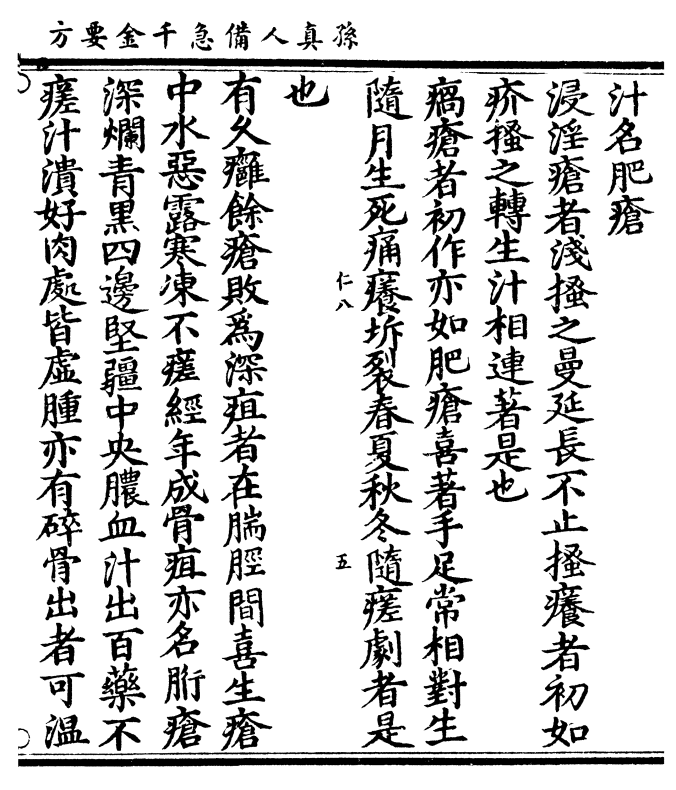 孫真人備急千金要方
汁名肥瘡
浸淫瘡者淺搔之曼延長不止搔癢者初如
疥搔之轉生汁相連著是也
瘑瘡者初作亦如肥瘡喜著手足常相對生
隨月生死痛癢坼裂春夏秋冬隨瘥劇者是
仁八
五
也
有久癰餘瘡敗為深疽者在腨脛間喜生瘡
中水惡露寒凍不瘥經年成骨疽亦名胻瘡
深爛青黑四邊堅彊中央膿血汁出百藥不
瘥汁潰好肉處皆虛腫亦有碎骨出者可溫